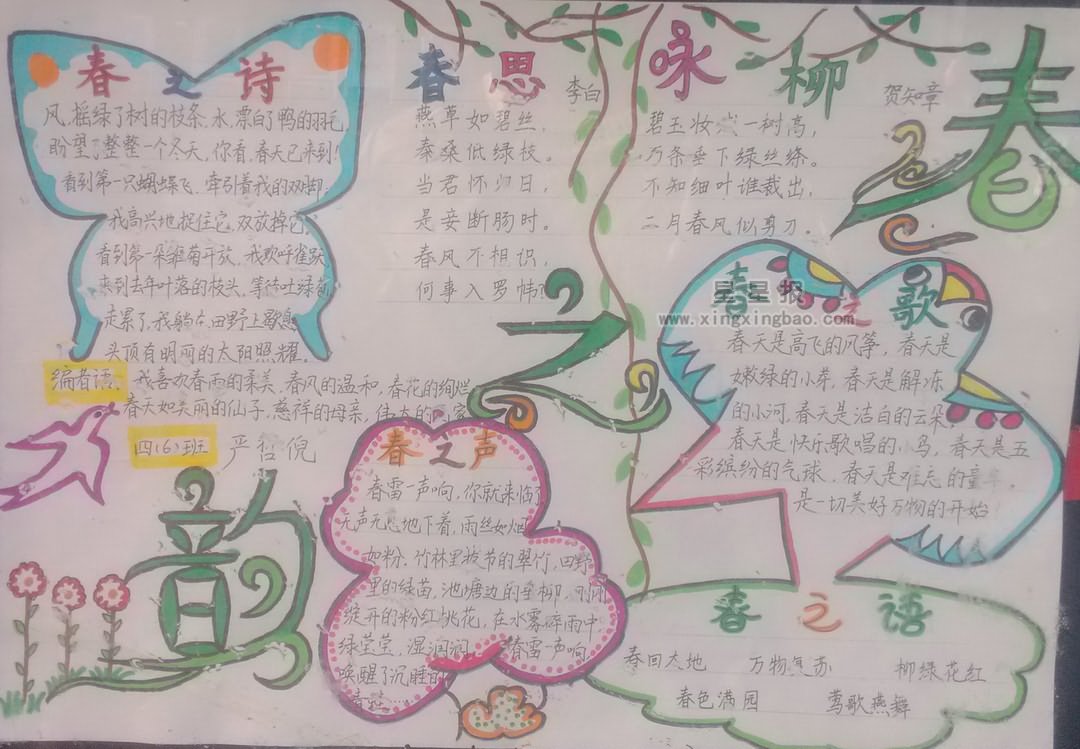 春之诗
风,摇绿了树的枝条,水,漂白了鸭的羽毛,
盼望了整整一个冬天,你看,春天已来到!
看到第一只蝴蝶飞,牵引着我的双脚;
我高兴地捉住它,又放掉它;
看到第一朵雏菊开放,我欢呼雀跃
来到去年叶落的枝头,等待吐绿
走累了,我躺在田野上歇息
头顶有明丽的太阳照耀。
编者语:我喜欢春雨的柔美,春风的温和,春花的绚烂
春天如美丽的仙子,慈祥的母亲,伟大的
四(6)班 严哲倪
春思
李白
燕草如碧丝,
秦桑低绿枝。
当君怀归日,
是妾断肠时。
春风不相识,
何事入罗帏?
咏柳
贺知章
碧玉妆成一树高,
万条垂下绿丝绦。
不知细叶谁裁出,
二月春风似剪刀。
春
之
韵
星星报
www.xingxingbao.com
春之歌
春天是高飞的风筝,春天是
嫩绿的小芽,春天是解冻
的小河,春天是洁白的云朵,
春天是快乐歌唱的小鸟,春天是五
彩缤纷的气球,春天是难忘的童
是一切美好万物的开始
春之声
春雷一声响,你就来临了
无声无息地下着,雨丝如烟
如粉,竹林里拔节的翠竹,田野
里的绿苗,池塘边的垂柳,刚刚
绽开的粉红桃花,在水雾碎雨中
绿莹莹,湿润润,春雷一声响
唤醒了沉睡的
青蛙……
春之语
春回大地 万物复苏 柳绿花红
春色满园 莺歌燕舞